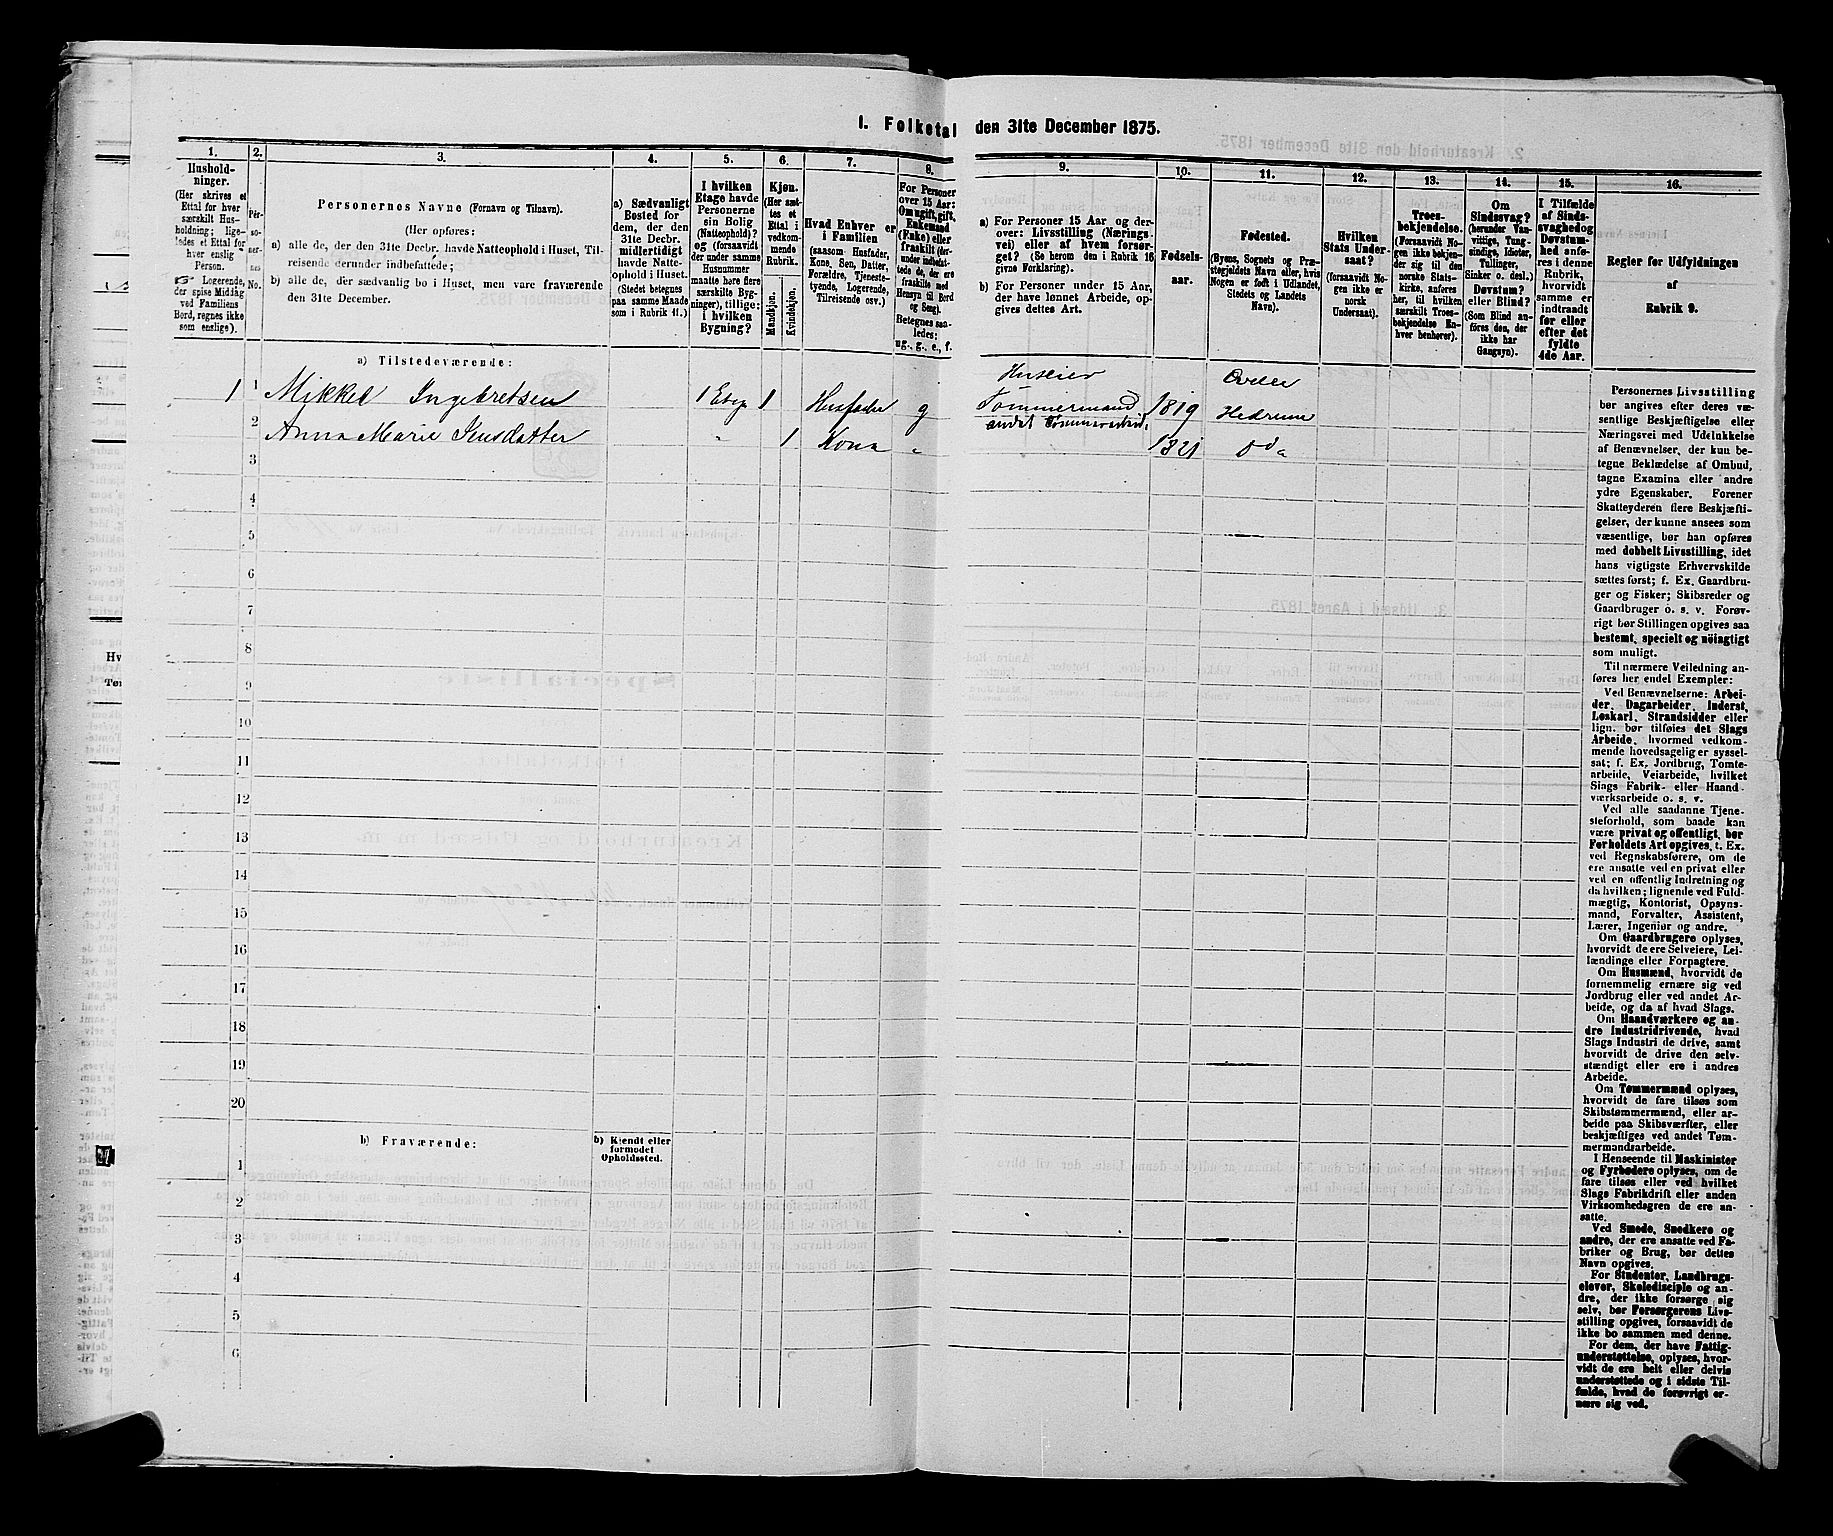 1. Folketal den 31te December 1875.
1.
2.
3.
4.
5.
6.
7.
8.
9.
10.
11.
12.
13.
14.
15.
16.
Hushold-
ninger.
(Her skrives et
Ettal for hver
særskilt Hus-
holdning; lige-
ledes et Ettal for
hver enslig
Person.
Logerende,
der spise Middag
ved Familiens
Bord, regnes ikke
som enslige).
Per-
so-
ner-
nes
No.
Personernes Navne (Fornavn og Tilnavn).
(Her opføres:
a) alle de, der den 31te Decbr. havde Natteophold i Huset, Til-
reisende derunder indbefattede;
b) alle de, der sædvanlig bo i Huset, men vare fraværende
den 31te December.
a) Sædvanligt
Bosted for
dem, der den
31te Decbr.
midlertidigt
havde Natte-
ophold i Huset.
(Stedet betegnes
paa samme Maade
som i Rubrik 11.)
I hvilken
Etage havde
Personerne
sin Bolig
(Natteophold)?
og (forsaavidt
der under samme
Husnummer
maatte høre flere
særskilte Byg-
ninger), tillige:
i hvilken
Bygning?
Kjøn.
(Her sæt-
tes et
Ettal i
vedkom-
mende
Rubrik.
Mandkjøn.
Kvindekjøn.
Hvad Enhver er
i Familien
(saasom Husfader,
Kone, Søn, Datter,
Forældre, Tjeneste-
tyende, Logerende,
Tilreisende osv.)
For Personer
over 15 Aar:
Om ugift, gift,
Enkemand
(Enke) eller
fraskilt (der-
under indbefat-
tede de, der ere
fraskilte med
Hensyn til Bord
og Seng).
Betegnes saa-
ledes:
ug., g., e., f.
a) For Personer 15 Aar og der-
over: Livsstilling (Nærings-
vei) eller af hvem forsør-
get? (Se herom den i Rubrik 16
givne Forklaring).
b) For Personer under 15 Aar,
der have lønnet Arbeide, op-
gives dettes Art.
Fødsels-
aar.
Fødested.
(Byens, Sognets og Præ-
stegjeldets Navn eller, hvis
Nogen er født i Udlandet,
Stedets og Landets
Navn).
Hvilken
Stats Under-
saat?
(forsaavidt No-
gen ikke er
norsk
Undersaat).
Troes-
bekjendelse.
(Forsaavidt No-
gen ikke bekjen-
der sig til den
norske Stats-
kirke, anføres
her, til hvilken
særskilt Troes-
bekjendelse En-
hver henhører).
Om
Sindssvag?
(herunder Van-
vittige, Tung-
sindige, Idioter,
Tullinger,
Sinker o. desl.)
Døvstum?
eller Blind?
(Som Blind an-
føres den, der
ikke har
Gangsyn).
I Tilfælde
af Sinds-
svaghed og
Døvstum-
hed anfø-
res i denne
Rubrik,
hvorvidt
samme er
indtraadt
før eller
efter det
fyldte
4de Aar.
Regler for Udfyldningen
af
Rubrik 9.
a) Tilstedeværende:
1 1 Mikkel Ingebretsen 1 Etag 1 Husfader g Huseier Tømmermand andet Tømmerarbeid 1819 Hedrum
2 Anna Marie Jensdatter " 1 Kona " 1821 do
3
4
5
6
7
8
9
10
11
12
13
14
15
16
17
18
19
20
b) Fraværende:
b) Kjendt eller
formodet
Opholdssted.
1
2
3
4
5
6
Personernes Livsstilling
bør angives efter deres væ-
sentlige Beskjæftigelse eller
Næringsvei med Udelukkelse
af Benævnelser, der kun be-
tegne Beklædelse af Ombud,
tagne Examina eller andre
ydre Egenskaber. Forener
Skatteyderen flere Beskjæfti-
gelser, der kunne ansees som
væsentlige, bør han opføres
med dobbelt Livsstilling, idet
hans vigtigste Erhvervskilde
sættes først; f. Ex. Gaardbru-
ger og Fisker; Skibsreder og
Gaardbruger o. s. v. Forøv-
rigt bør Stillingen opgives saa
bestemt, specielt og nøiagtigt
som muligt.
Til nærmere Veiledning an-
føres her endel Exempler:
Ved Benævnelserne: Arbei-
der, Dagarbeider, Inderst,
Løskarl, Strandsidder eller
lign. bør tilføies det Slags
Arbeide, hvormed vedkom-
mende hovedsagelig er syssel-
sat; f. Ex. Jordbrug, Tomte-
arbeide, Veiarbeide, hvilket
Slags Fabrik- eller Haand-
værksarbeide o. s. v.
Ved alle saadanne Tjene-
steforhold, som baade kan
være privat og offentligt, bør
Forholdets Art opgives, t. Ex.
ved Regnskabsførere, om de
ere ansatte ved en privat eller
ved en offentlig Indretning og
da hvilken; lignende ved Fuld-
mægtig, Kontorist, Opsyns-
mand, Forvalter, Assistent,
Lærer, Ingeniør og andre.
Om Gaardbrugere oplyses,
hvorvidt de ere Selveiere, Lei-
lændinge eller Forpagtere.
Om Husmænd, hvorvidt de
fornemmelig ernære sig ved
Jordbrug eller ved andet Ar-
beide, og da af hvad Slags.
Om Haandværkere og an-
dre Industridrivende, hvad
Slags Industri de drive, samt
hvorvidt de drive den selv-
stændigt eller ere i andres
Arbeide.
Om Tømmermænd oplyses,
hvorvidt de fare tilsøs som
Skibstømmermænd, eller ar-
beide paa Skibsværfter, eller
beskjæftiges ved andet Tøm-
mermandsarbeide.
I Henseende til Maskinister
og Fyrbødere oplyses, om de
fare tilsøs eller ved hvilket
Slags Fabrikdrift eller anden
Virksomhedsgren de ere an-
satte.
Ved Smede, Snedkere og
andre, der ere ansatte ved Fa-
briker og Brug, bør dettes
Navn opgives.
For Studenter, Landbrugs-
elever, Skoledisciple og an-
dre, der ikke forsørge sig
selv, bør Forsørgerens Livs-
stilling opgives, forsaavidt de
ikke bo sammen med denne.
For dem, der have Fattig-
understøttelse, oplyses, hvor-
vidt de ere helt eller delvis
understøttede og i sidste Til-
fælde, hvad de forøvrigt er-
nære sig ved.